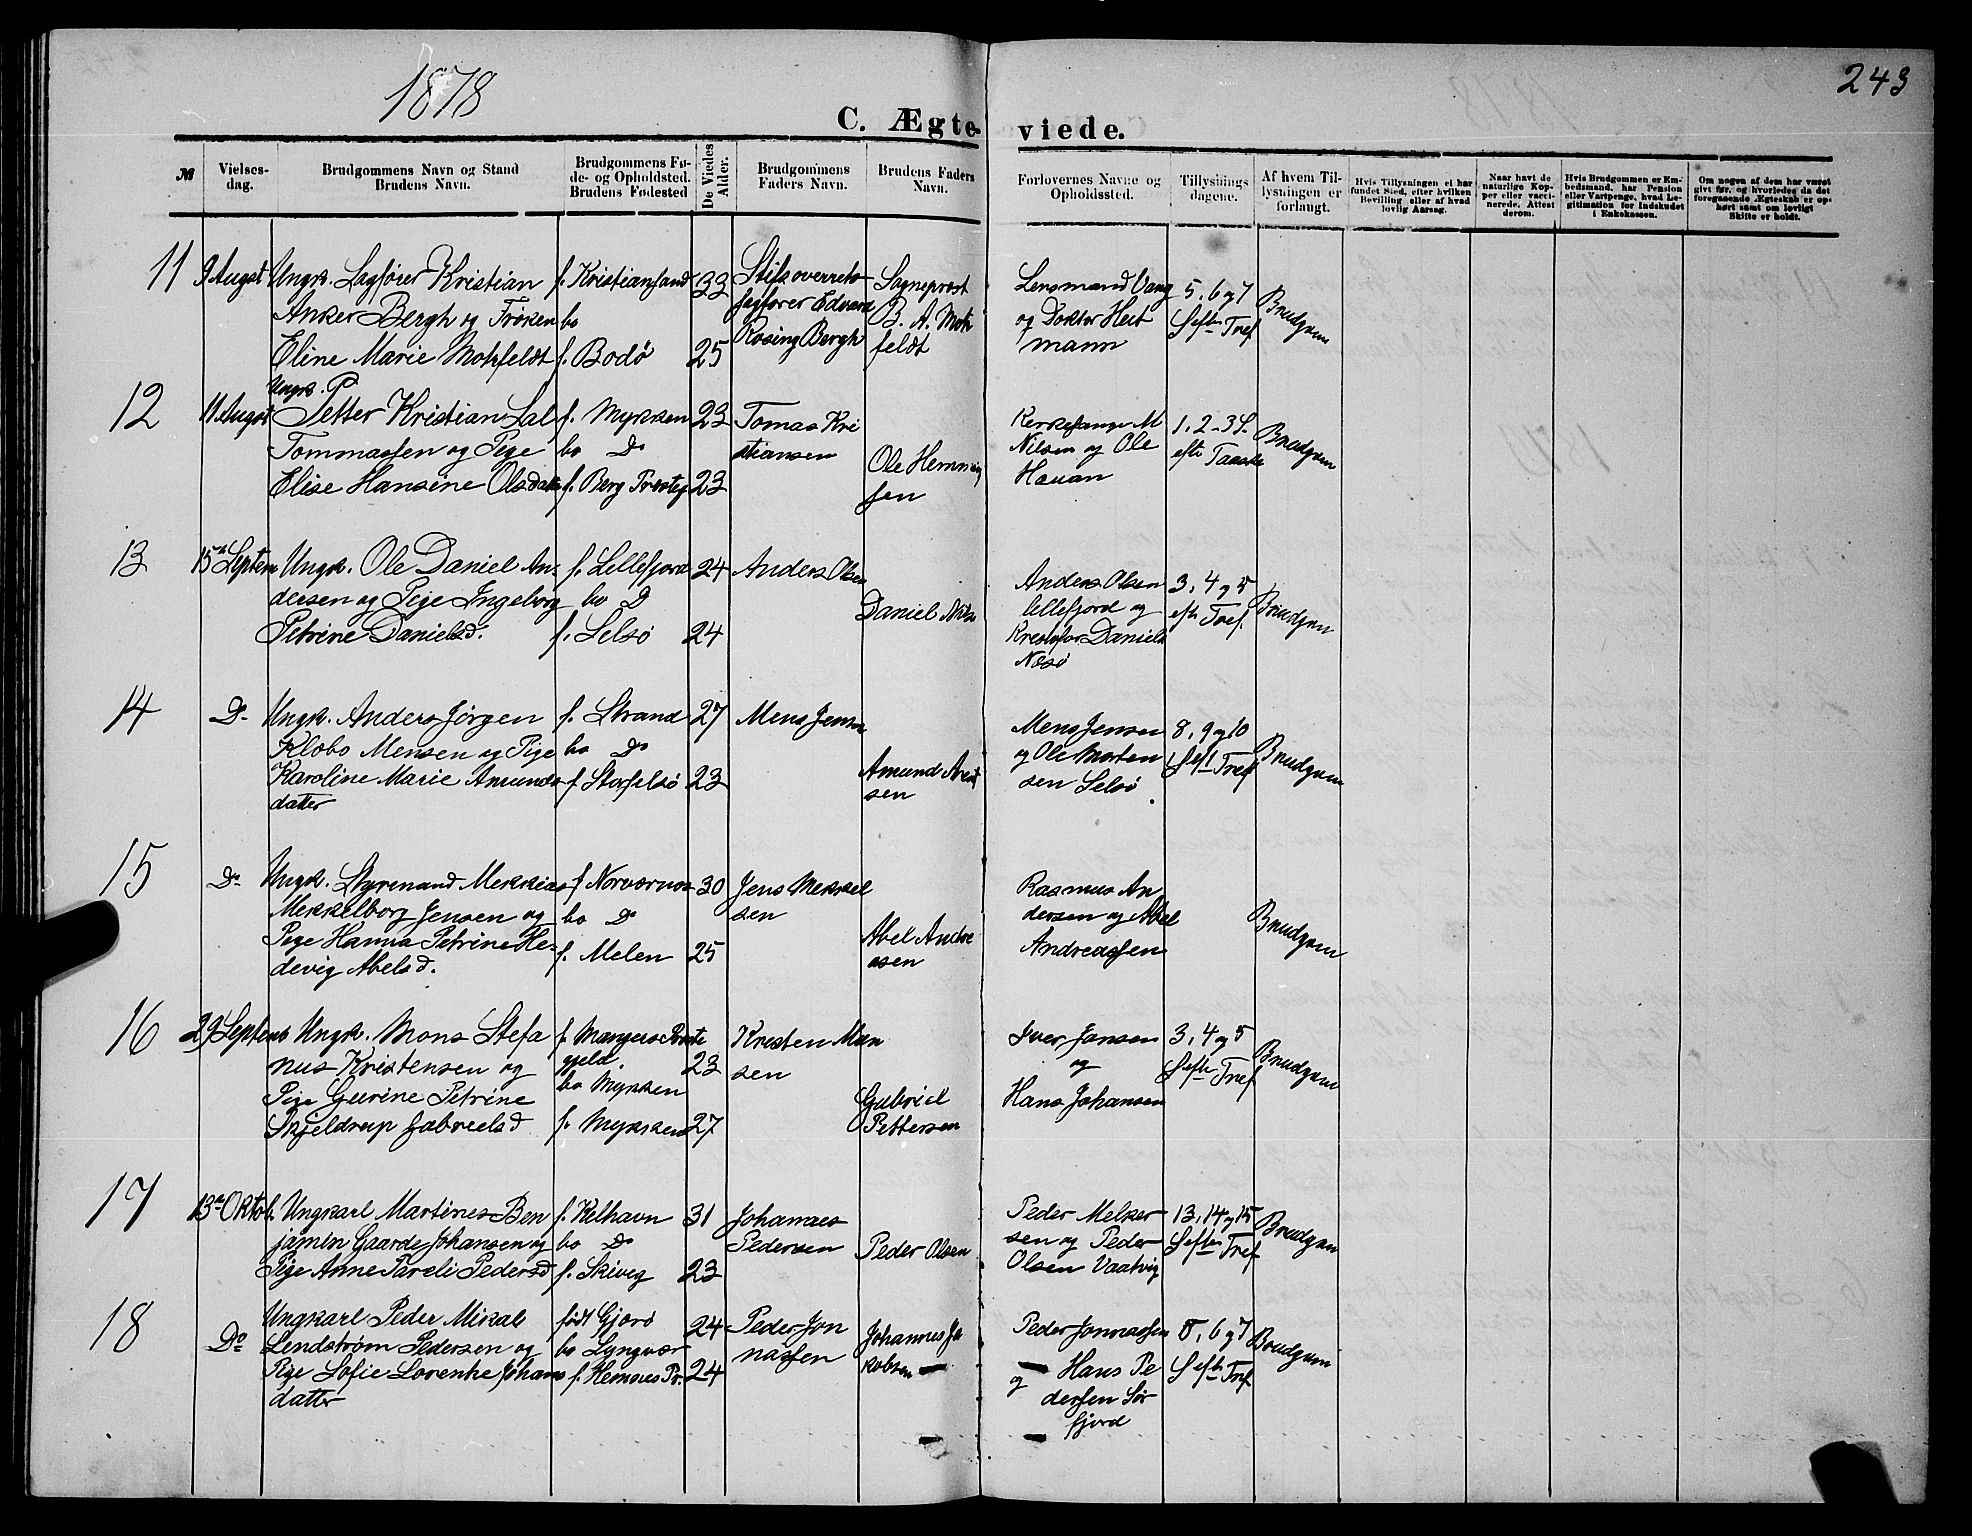 1878
243
C. Ægte-
viede.
№
Vielses-
dag.
Brudgommens Navn og Stand
Brudens Navn.
Brudgommens Fø-
de- og Opholdsted.
Brudens Fødested
De Viedes
Alder.
Brudgommens
Faders Navn.
Brudens Faders
Navn.
Forlovernes Navne og
Opholdssted.
Tillysnings
dagene.
Af hvem Til-
lysningen er
forlangt.
Hvis Tillysningen ei har
fundet Sted, efter hvilken
Bevilling eller af hvad
lovlig Aarsag.
Naar havt de
naturlige Kop-
per eller vacci-
nerede. Attest
derom.
Hvis Brudgommen er Em-
bedsmand, har Pension
eller Vartpenge, hvad Le-
gitimation for Indskudet
i Enkekassen.
Om nogen af dem har været
gift før, og hvorledes da det
foregaaende Ægteskab er op-
hørt samt om lovligt
Skifte er holdt.
11
9 Augst
Ungk. Sagfører Kristian
Anker Bergh og Frøken
Eline Marie Mohfeldt
f. Kristiansand
bo
f. Bodø
33
25
Stifsoverrets
sagfører Edvard
Rosing Bergh
Sogneprest
B. A. Moh
feldt
Lensmand Vang
og Doktor Heit
mann
5, 6 og 7
S. eft Tref
Brudgom
12
11 Augst
Ungk. P
Petter Kristian Lal
Tommassen og Pige
Elise Hansine Olsdatt
f. Mykken
bo Do
f. Berg Presteg
23
23
Tomas Kri
stiansen
Ole Hemming
sen
Kerkesanger M
Nilsen og Ole
Hauan
1, 2 - 3 S.
eft Paaske
Brudgom
13
15 Septem
Ungk. Ole Daniel An-
dersen og Pige Ingeborg
Petrine Danielsd.
f. Lillefjord
bo D
f. Selsø
24
24
Anders Olsen
Daniel Nils
Anders Olsen
lillefjord og
Krestofor Daniels
Nesø
3, 4 og 5
eft Tref.
Brudgom
14
Do
Ungk. Anders Jørgen
Klobo Mensen og Pige
Karoline Marie Amunds
datter
f. Strand
bo Do
f. Storselsø
27
23
Mens Jensen
Amund Arent
sen
Mens Jensen
og Ole Morten
sen Selsø
8, 9 og 10
S eft Tref
Brudgom
15
Do
Ungk. Styrenand Mekkias
Mekkelborg Jensen og
Pige Hanna Petrine He-
devig Abelsd.
f. Norværnes
bo Do
f. Melen
30
25
Jens Mekkel
sen
Abel Andre
asen
Rasmus An
dersen og Abel
Andreassen
Brudgom
16
29 Septemb
Ungk. Mons Stefa
nus Kristensen og
Pige Gurine Petrine
Skjeldrup Gabrielsd
f. Mangers Preste
gjeld.
bo Mykken
f. Mykken
23
27
Kresten Mon
sen
Gabriel
Pettersen
Iver Jansen
og
Hans Johansen
3, 4 og 5
S eft Tref
Brudgom
17
13 Oktob.
Ungkarl Martines Ben
jamin Gaarde Johansen og
Pige Anne Pareli Pedersd
f. Kelhavn
bo Do
f. Skiveg
31
23
Johannes
Pedersen
Peder Olsen
Peder Melker
sen og Peder
Olsen Vaatvig
13, 14 og 15
S eft Tref
Brudgom
18
Do
Ungkarl Peder Mikal
Lendstrøm Pedersen og
Pige Sofie Lorentse Johans
datter
født Gjerø
bo Lyngvær
f. Hemnes Pr.
24
24
Peder Jon
nassen
Johannes Ja
kobsen
Peder Jonnassen
og Hans Pe
dersen Sør
fjord
5, 6 og 7
S eft Tref
Brudgom